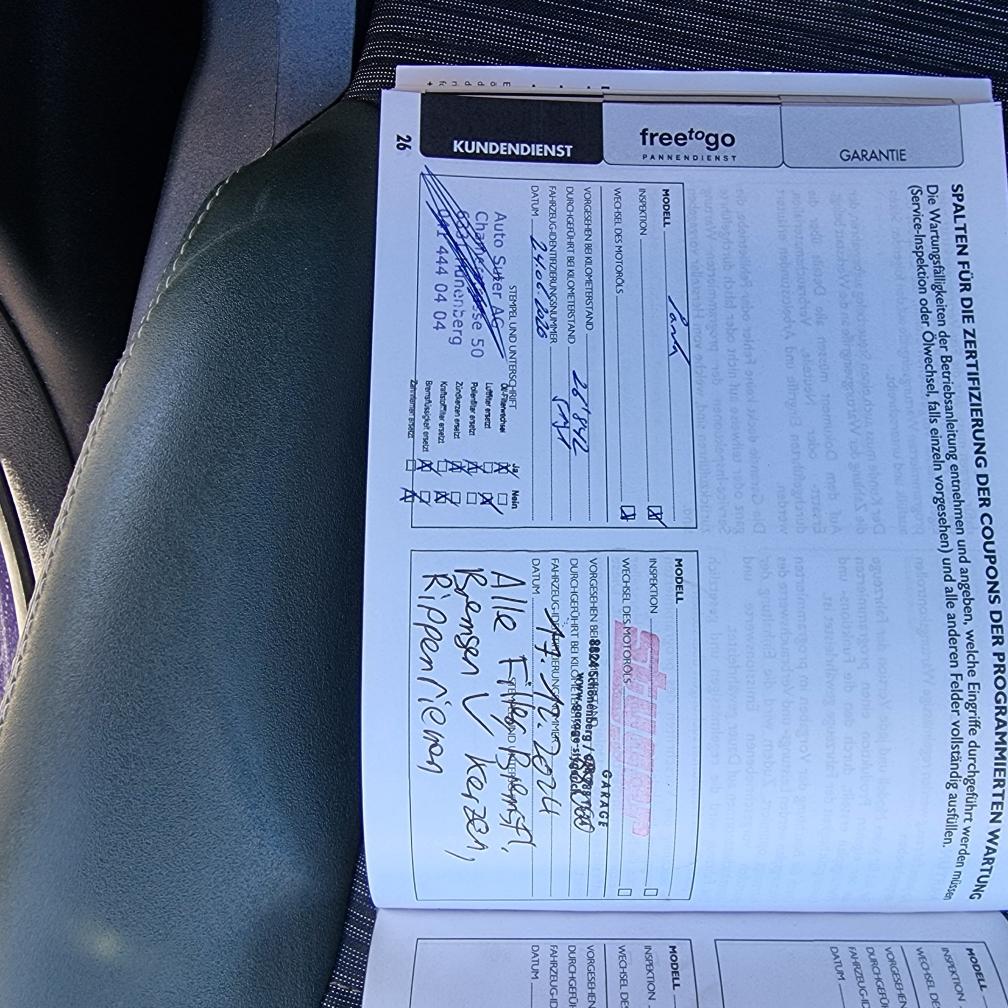 SPALTEN FÜR DIE ZERTIFIZIERUNG DER COUPONS DER PROGRAMMIERTEN WARTUNG
Die Wartungsfälligkeiten der Betriebsanleitung entnehmen und angeben, welche Eingriffe durchgeführt werden müssen
(Service-Inspektion oder Ölwechsel, falls einzeln vorgesehen) und alle anderen Felder vollständig ausfüllen.
GARANTIE
freetogo
PANNENDIENST
KUNDENDIENST
26
MODELL
INSPEKTION
WECHSEL DES MOTORÖLS
VORGESEHEN BEI KILOMETERSTAND
DURCHGEFÜHRT BEI KILOMETERSTAND 26'842
FAHRZEUG-IDENTIFIZIERUNGSNUMMER
DATUM 24.06.2020
STEMPEL UND UNTERSCHRIFT
Auto Suter AG
50
Hünenberg
041 444 04 04
Ja Nein
Öl-Filterwechsel
Luftfilter ersetzt
Pollenfilter ersetzt
Zündkerzen ersetzt
Kraftstofffilter ersetzt
Bremsflüssigkeit ersetzt
Zahnriemen ersetzt
MODELL
INSPEKTION
WECHSEL DES MOTORÖLS
GARAGE
VORGESEHEN BEI
8824 Schönenberg
DURCHGEFÜHRT BEI
DATUM
17.12.2024
Alle Filter, Bremsfl,
Bremsen V Kerzen,
Rippenriemen
MODELL
INSPEKTION
WECHSEL DES
VORGESEHEN
DURCHGEFÜHR
FAHRZEUG-IDEN
DATUM
MODELL
INSPEKTION
WECHSEL DES
VORGESEHEN
DURCHGEFÜH
FAHRZEUG-ID
DATUM